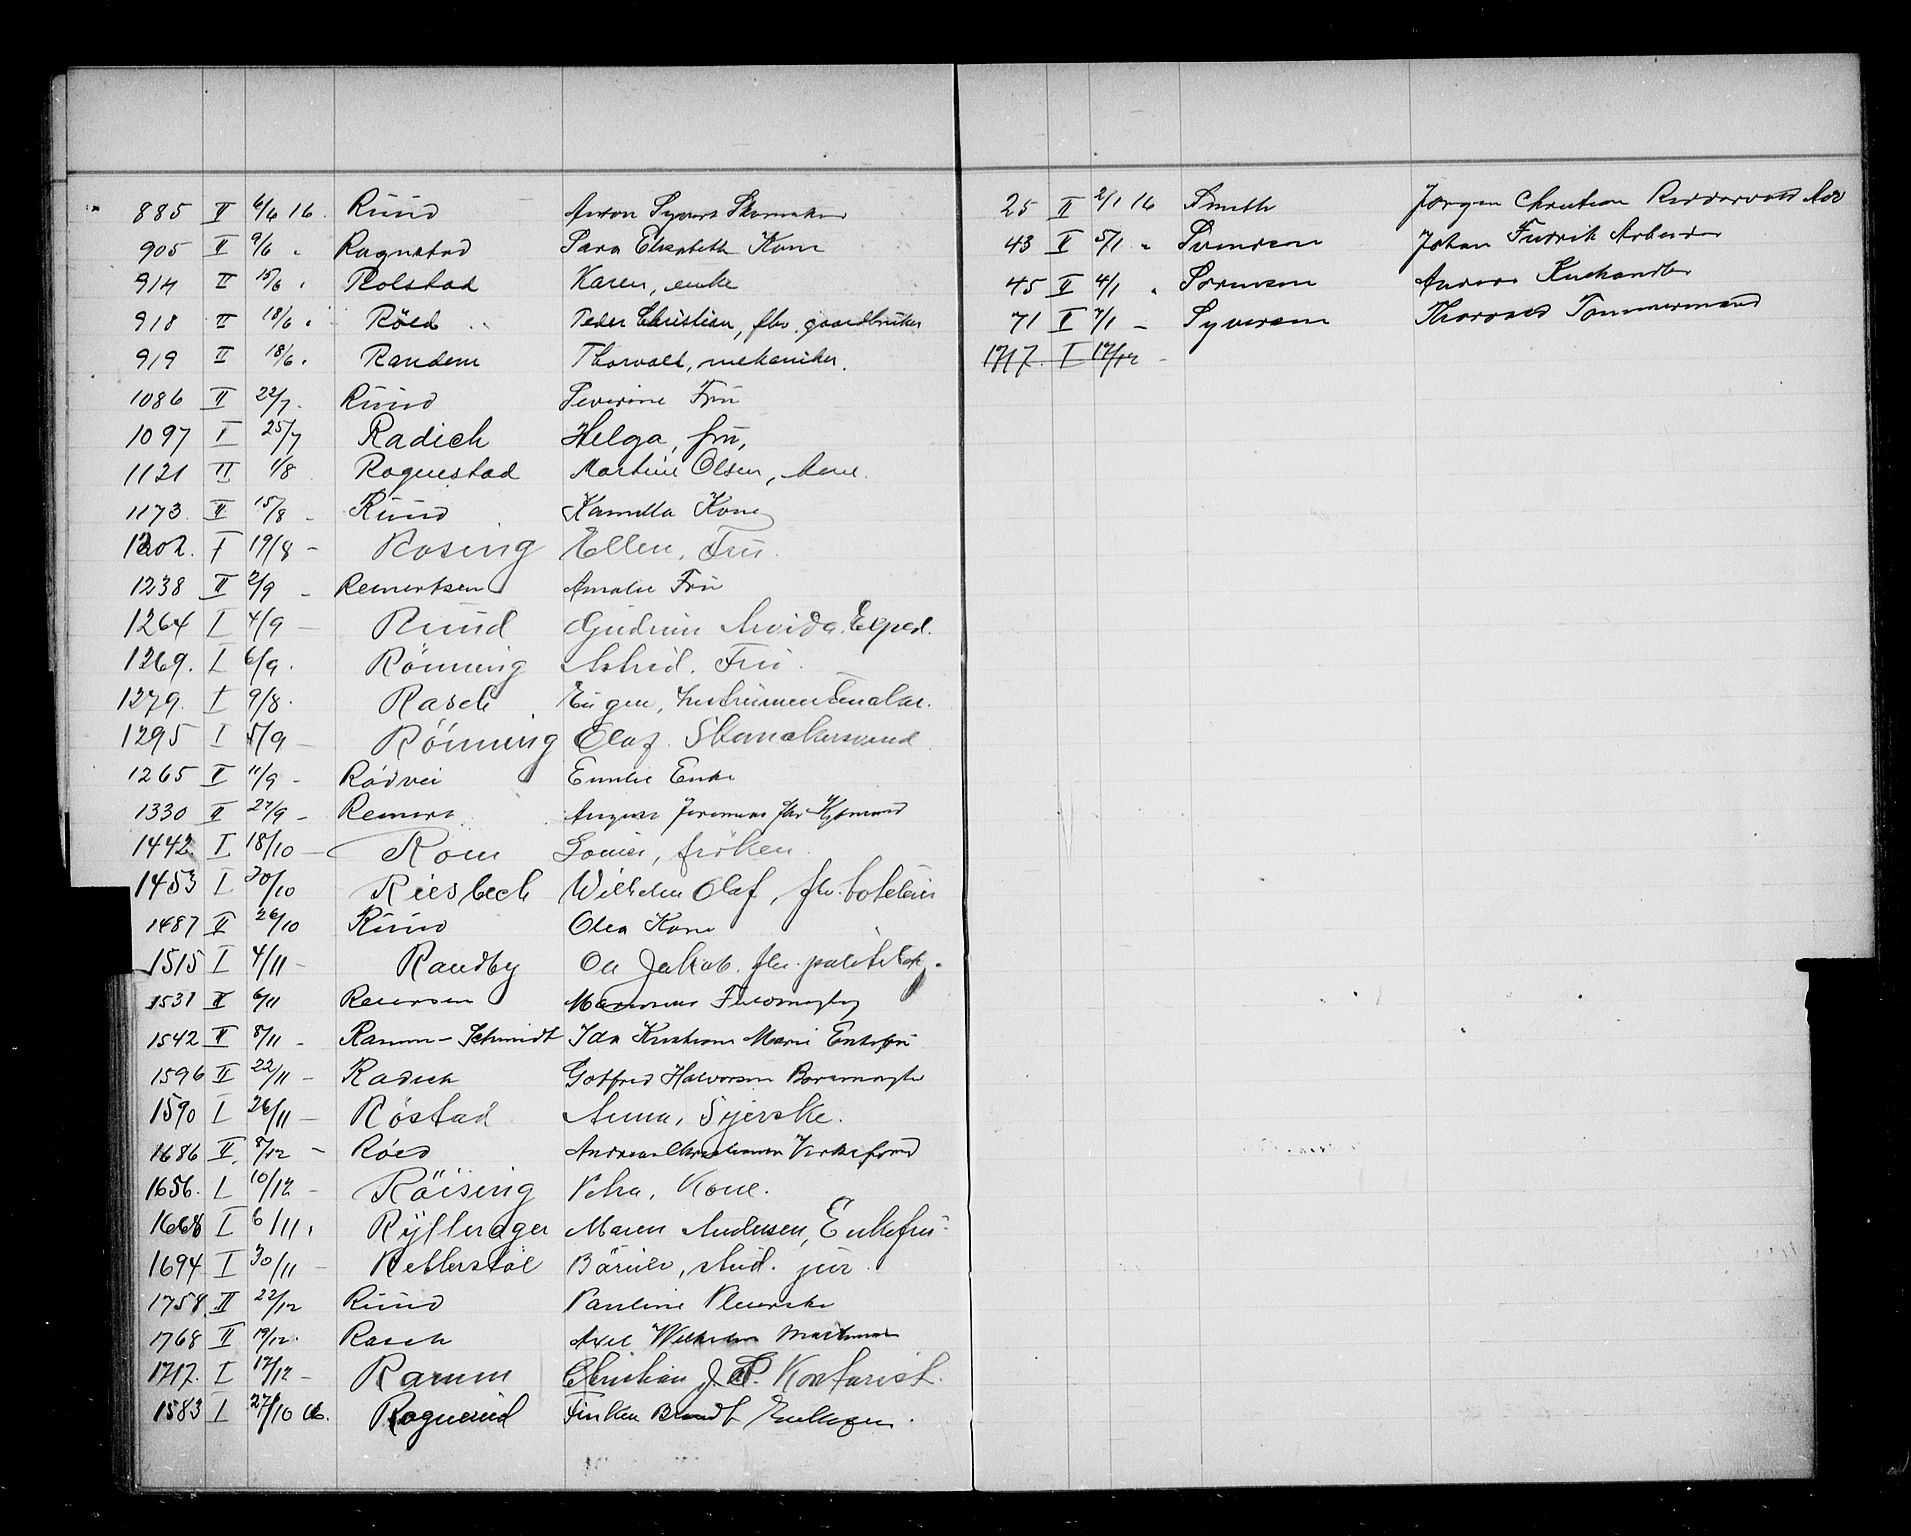 885 II 6/6 16. Ruud Anton Syvert Skomaker
905 II 9/6 " Rognstad Sara Elisabeth Kone
914 II 15/6 " Rolstad Karen, enke
918 II 18/6 " Röed Peder Christian, fhv. gaardbruker
919 II 18/6. Randem Thorvald, mekaniker.
1086 II 22/7. Ruud Severine Fru
1097 I 25/7 Radich Helga, fru,
1121 II 1/8 Rognestad Martine Olsen,
1173 II 15/8 - Ruud Kamilla Kone
1202. I 19/8 - Rosing Ellen, Fru.
1238 II 2/9 - Remertsen Amalie Fru
1264 I 4/9 - Ruud Gudrun Arvida. Exped.
1269. I 6/9. Rönning Astrid. Fru.
1279. I 9/8. Rasch Eugen, Instrumentmaker.
1295 I 5/9 - Rönning Olaf. Skomakersvend
1265 II 11/9 - Rödvei Emilie Enke
1330 II 27/9 - Remers August
1442 I 18/10 - Rom Louise, fröken.
1453 I 20/10 Riesbech Wilhelm Olaf, fhv.
1487 II 26/10 Ruud Olea Kone
1515 I 4/11 - Randby Ole Jakob. fhv.
1531 II 6/11 Reiersen
1542 II 8/11 - Ramm-Schmidt Ida Kristiane Marie Enkefru
1596 II 22/11 - Radich Gotfred Halvorsen
1590 I 26/11 - Röstad Anna, Syerske.
1686 II. 8/12 - Röed Andreas Christiansen
1656. I 10/12 - Röising Petra, Kone.
1668 I 6/11. Rytterager Maren Andersen, Enkefru.
1694 I 30/11 - Retterstöl Börule, stud. jur
1758. II 22/12 Ruud Pauline Pleierske
1768 II 19/12. Rasch Axel Wilhelm
1717. I 12/12 - Ramm Christian J. P. Kontorist.
1583 I 27/10 16. Rognerud Brandt
25 II 2/1 16 Smith Jörgen Christian
43 II 5/1 " Svendsen Johan Fredrik Arbeider
45 II 4/1 " Sörensen Anders
71 II 7/1 - Syversen Thorvald Tömmermand
1717. I 12/12 -